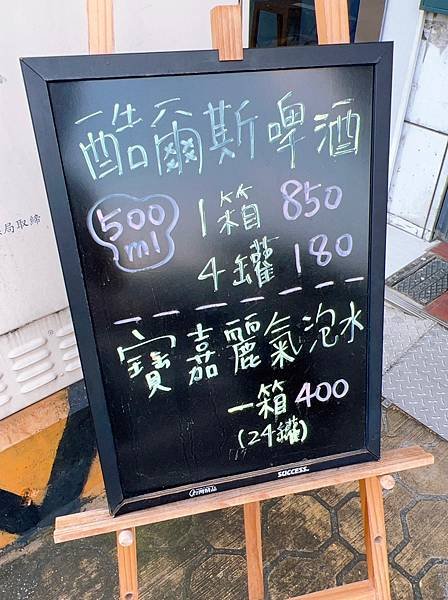 酷爾斯啤酒
500ml
1箱 850
4罐 180
寶嘉麗氣泡水
一箱400
(24罐)
SUCCESS
局取締